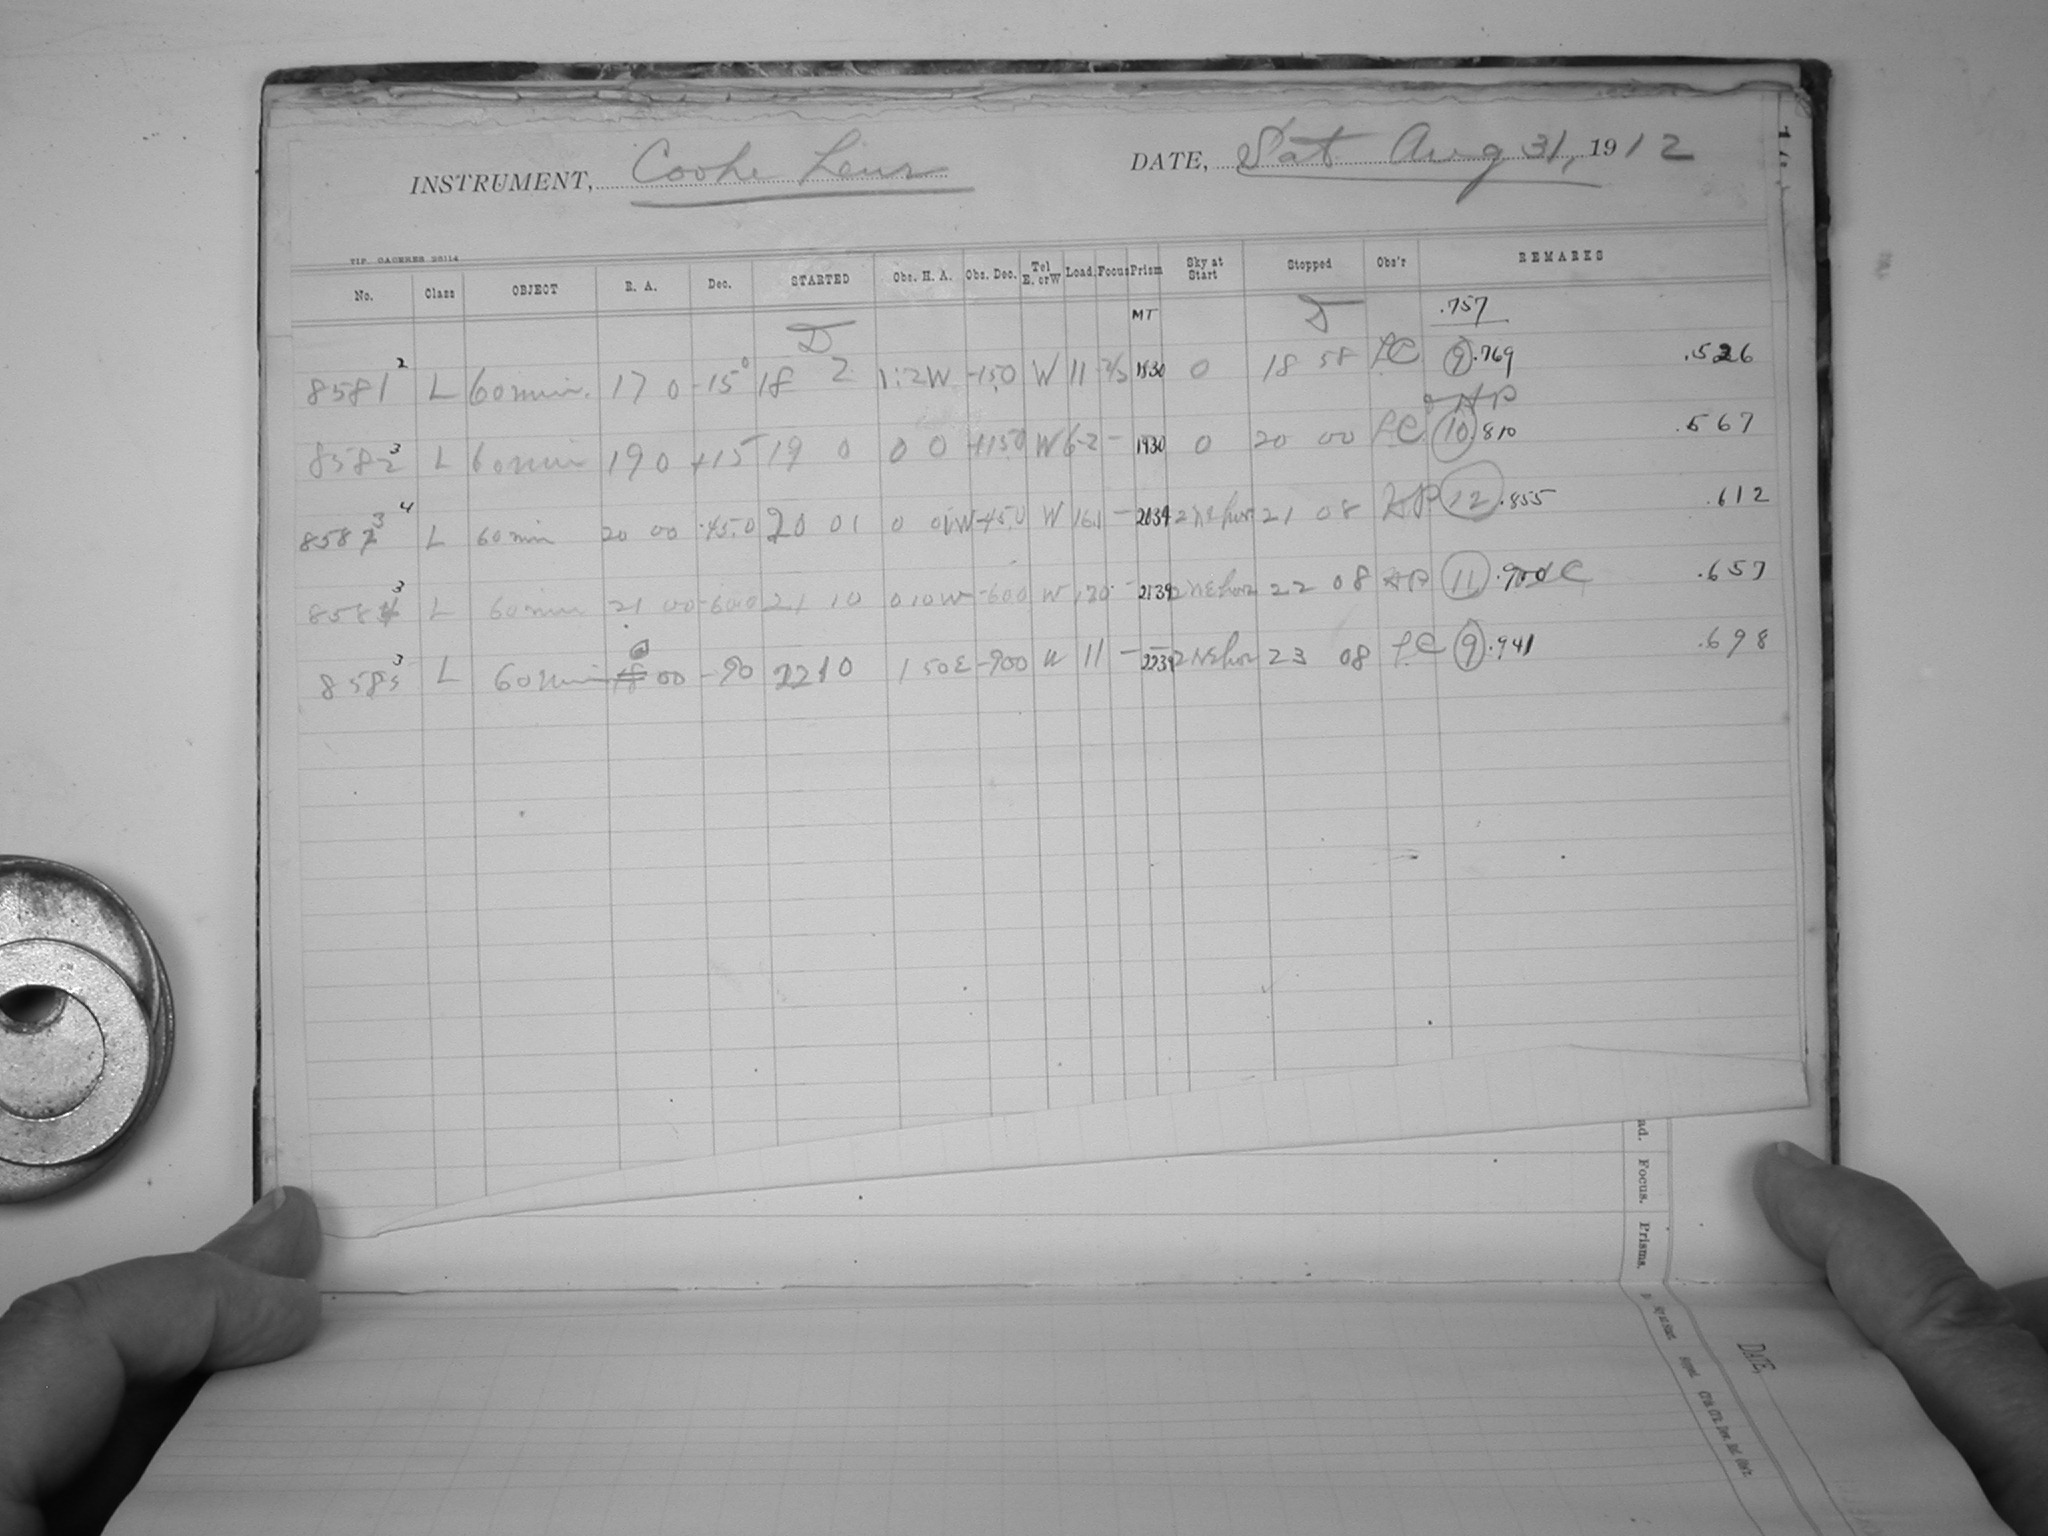 INSTRUMENT, Cooke Lens DATE, Sat Aug 31, 1912
TIP. CACERES 26114
No. Class OBJECT R. A. Dec. STARTED Obs. H. A. Obs. Dec. Tel E. or W Load. Focus Prism Sky at Start Stopped Obs'r REMARKS
MT .757
8581 2 L 60 min. 17 0 -15 0 18 2 1:2W -150 W 11 1830 0 18 58 LC 9 .769 .526
8582 3 L 60 min 19 0 +15 19 0 0 0 +150 W 6-2 - 1930 0 20 00 LC 10 .810 .567
8583 4 L 60 min 20 00 -45.0 20 01 0 01W -45.0 W 16.1 - 2039 2 NE hor 21 08 12 .855 .612
858 3 L 60 min 21 00 -600 21 10 0 10W -600 W 170 - 2139 2 NE hor 22 08 11 .657
8585 3 L 60 min 00 -90 2210 1 50E -900 W 11 - 2239 2 NE hor 23 08 LC 9 .941 .698
ad. Focus. Prisms.
Sky at Start Stopped
DATE,